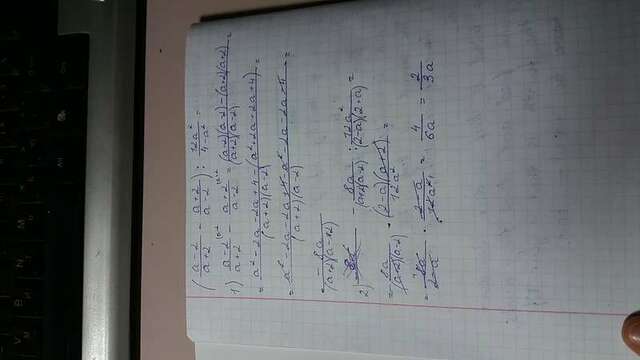 ( (a-2)/(a+2) - (a+2)/(a-2) ) : 12a²/(4-a²) =
1) (a-2)/(a+2) - (a+2)/(a-2) = ((a-2)(a-2)-(a+2)(a+2))/((a+2)(a-2)) =
= (a²-2a-2a+4-(a²+2a+2a+4))/((a+2)(a-2)) =
= (a²-2a-2a+4-a²-2a-2a-4)/((a+2)(a-2)) =
-8a/((a+2)(a-2))
2) -8a/((a+2)(a-2)) : 12a²/((2-a)(2+a)) =
= 8a/((a+2)(a-2)) · (2-a)(a+2)/12a² =
= 8a/(2-a) · (2-a)/12a² = 4/6a = 2/3a